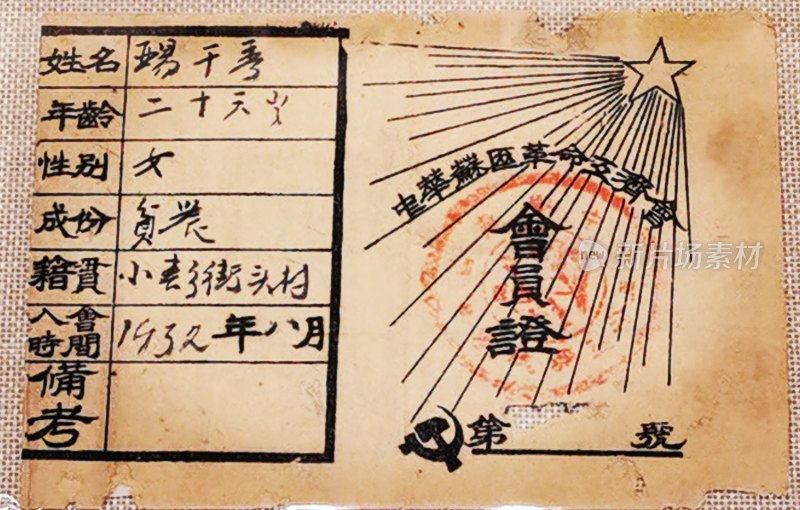 姓名 賜千秀
年齡 二十六岁
性别 女
成份 貧農
籍貫 小彭街头村
入會時間 1932年八月
備考
中華蘇區革命互濟會
會員證
第 號
new 新片场素材